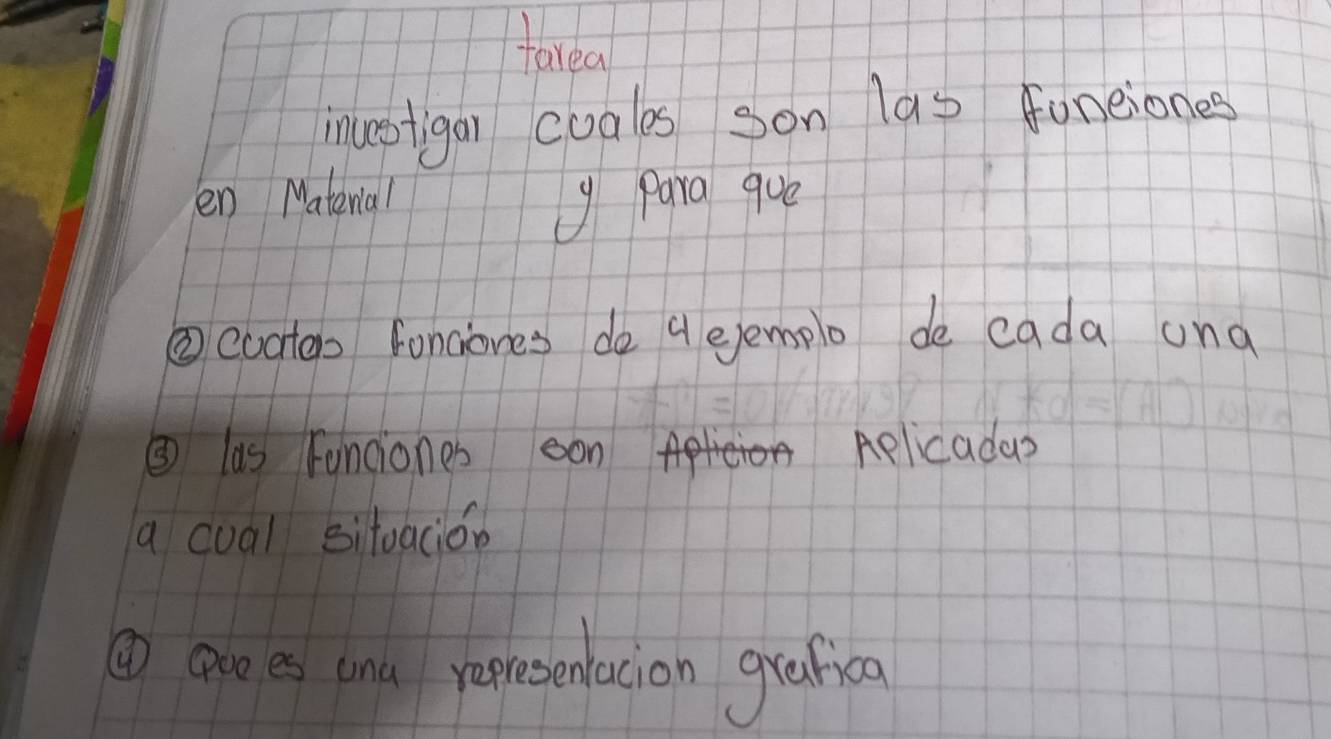 tarea
investigar cuales son las funciones
en Material y para que
② cuatas funciones de 4 ejemplo de cada una
③ las Funciones son Aplicion Aplicadas
a cual situación
④ Que es una representacion grafica